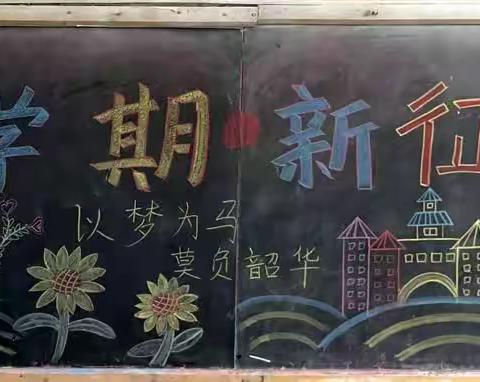 学期 新征
以梦为马
莫负韶华